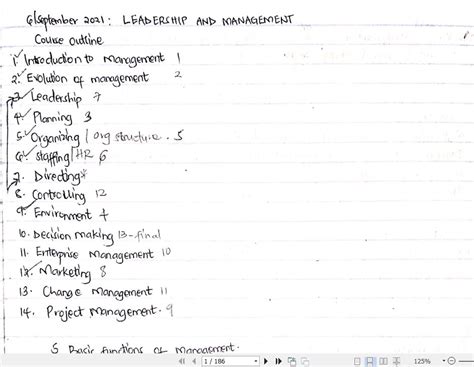 6/September 2021: LEADERSHIP AND MANAGEMENT
Course outline
1. Introduction to Management 1
2. Evolution of management 2
3. Leadership 7
4. Planning 3
5. Organizing / org structure. 5
6. Staffing/HR 6
7. Directing
8. Controlling 12
9. Environment 4
10. Decision making 13-final
11. Enterprise Management 10
12. Marketing 8
13. Change Management 11
14. Project Management. 9
5 Basic functions of Management.
1 / 186
125%